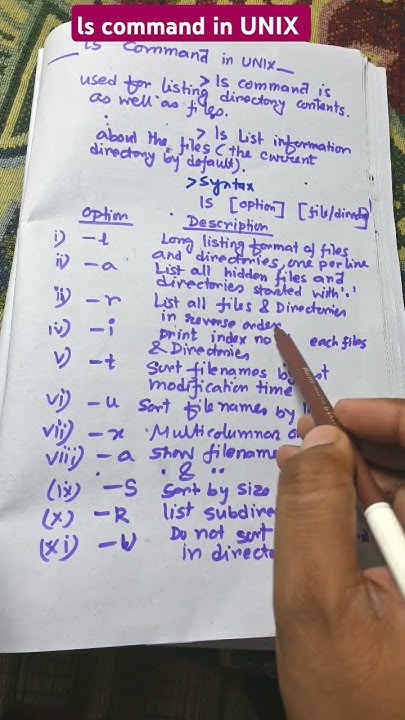 ls command in UNIX
ls Command in UNIX
> ls command is
used for listing directory contents.
as well as files.
> ls List information
about the files (the current
directory by default).
> Syntax
ls [option] [file/directory]
Option Description
i) -t Long listing format of files
and directories, one per line
ii) -a List all hidden files and
directories started with '.'
iii) -r List all files & Directories
in reverse order
iv) -i print index no each files
& Directories
v) -t Sort filenames by
modification time
vi) -u Sort filenames by
vii) -x Multicolumnar
viii) -a show filename
. & ..
(ix) -S Sort by Size
(x) -R list subdire
(xi) -U Do not sort
in directo